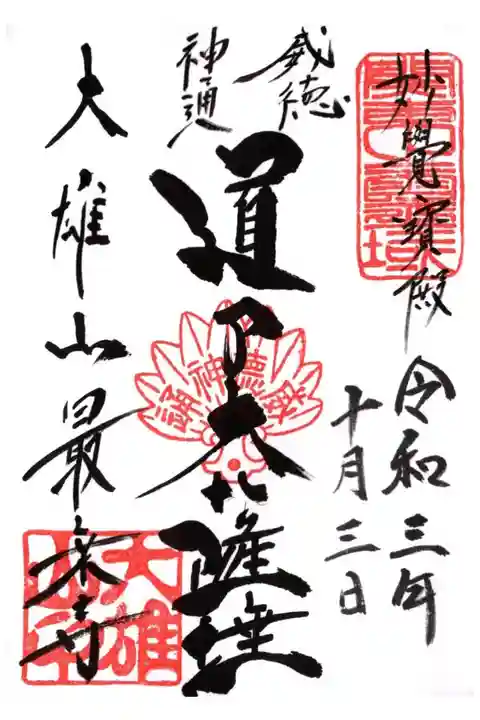 妙覺寶殿
令和三年
十月三日
威徳
神通
道了大薩埵
威徳神通
大雄山最乗寺
大雄
山印